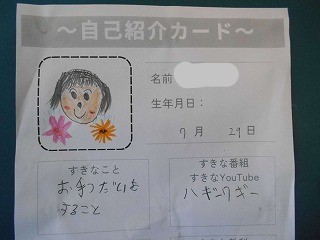 ～自己紹介カード～
名前
生年月日：
7月 29日
すきなこと
お手つだいを
すること
すきな番組
すきなYouTube
ハギンワギー